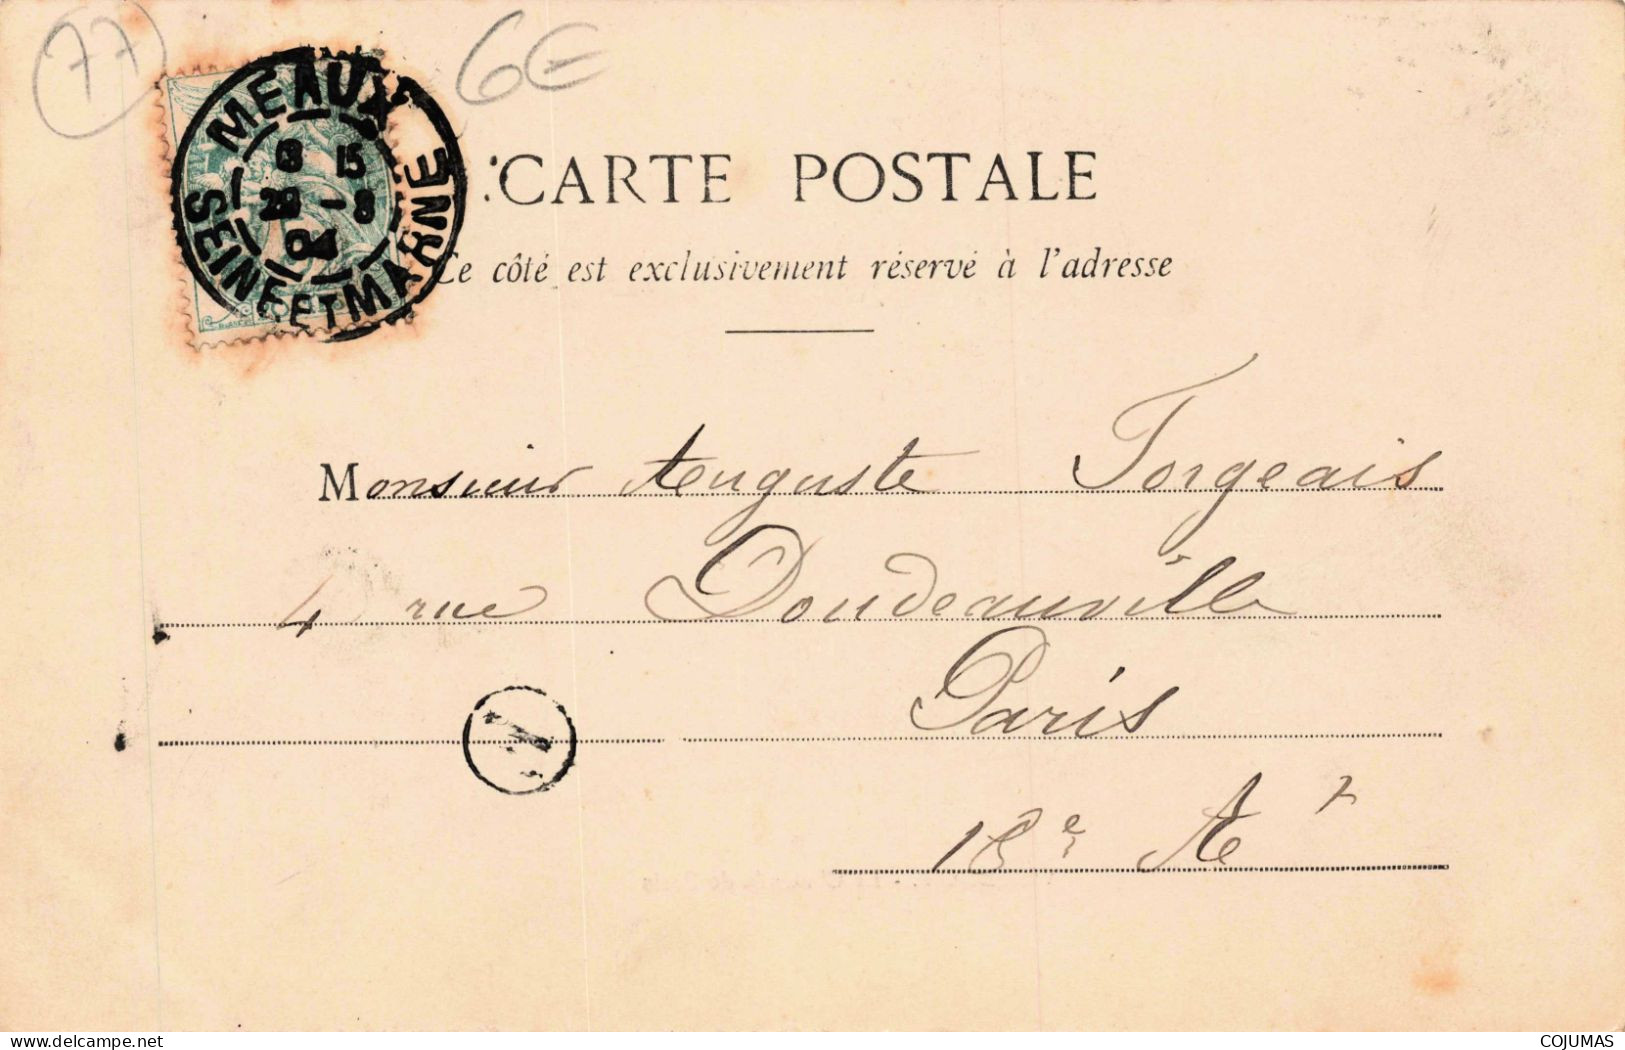 77
6€
MEAUX
8 15
29 -8
04
SEINE ET MARNE
CARTE POSTALE
Ce côté est exclusivement réservé à l'adresse
Monsieur Auguste Forgeais
4 rue Doudeauville
Paris
18e Ar
COJUMAS